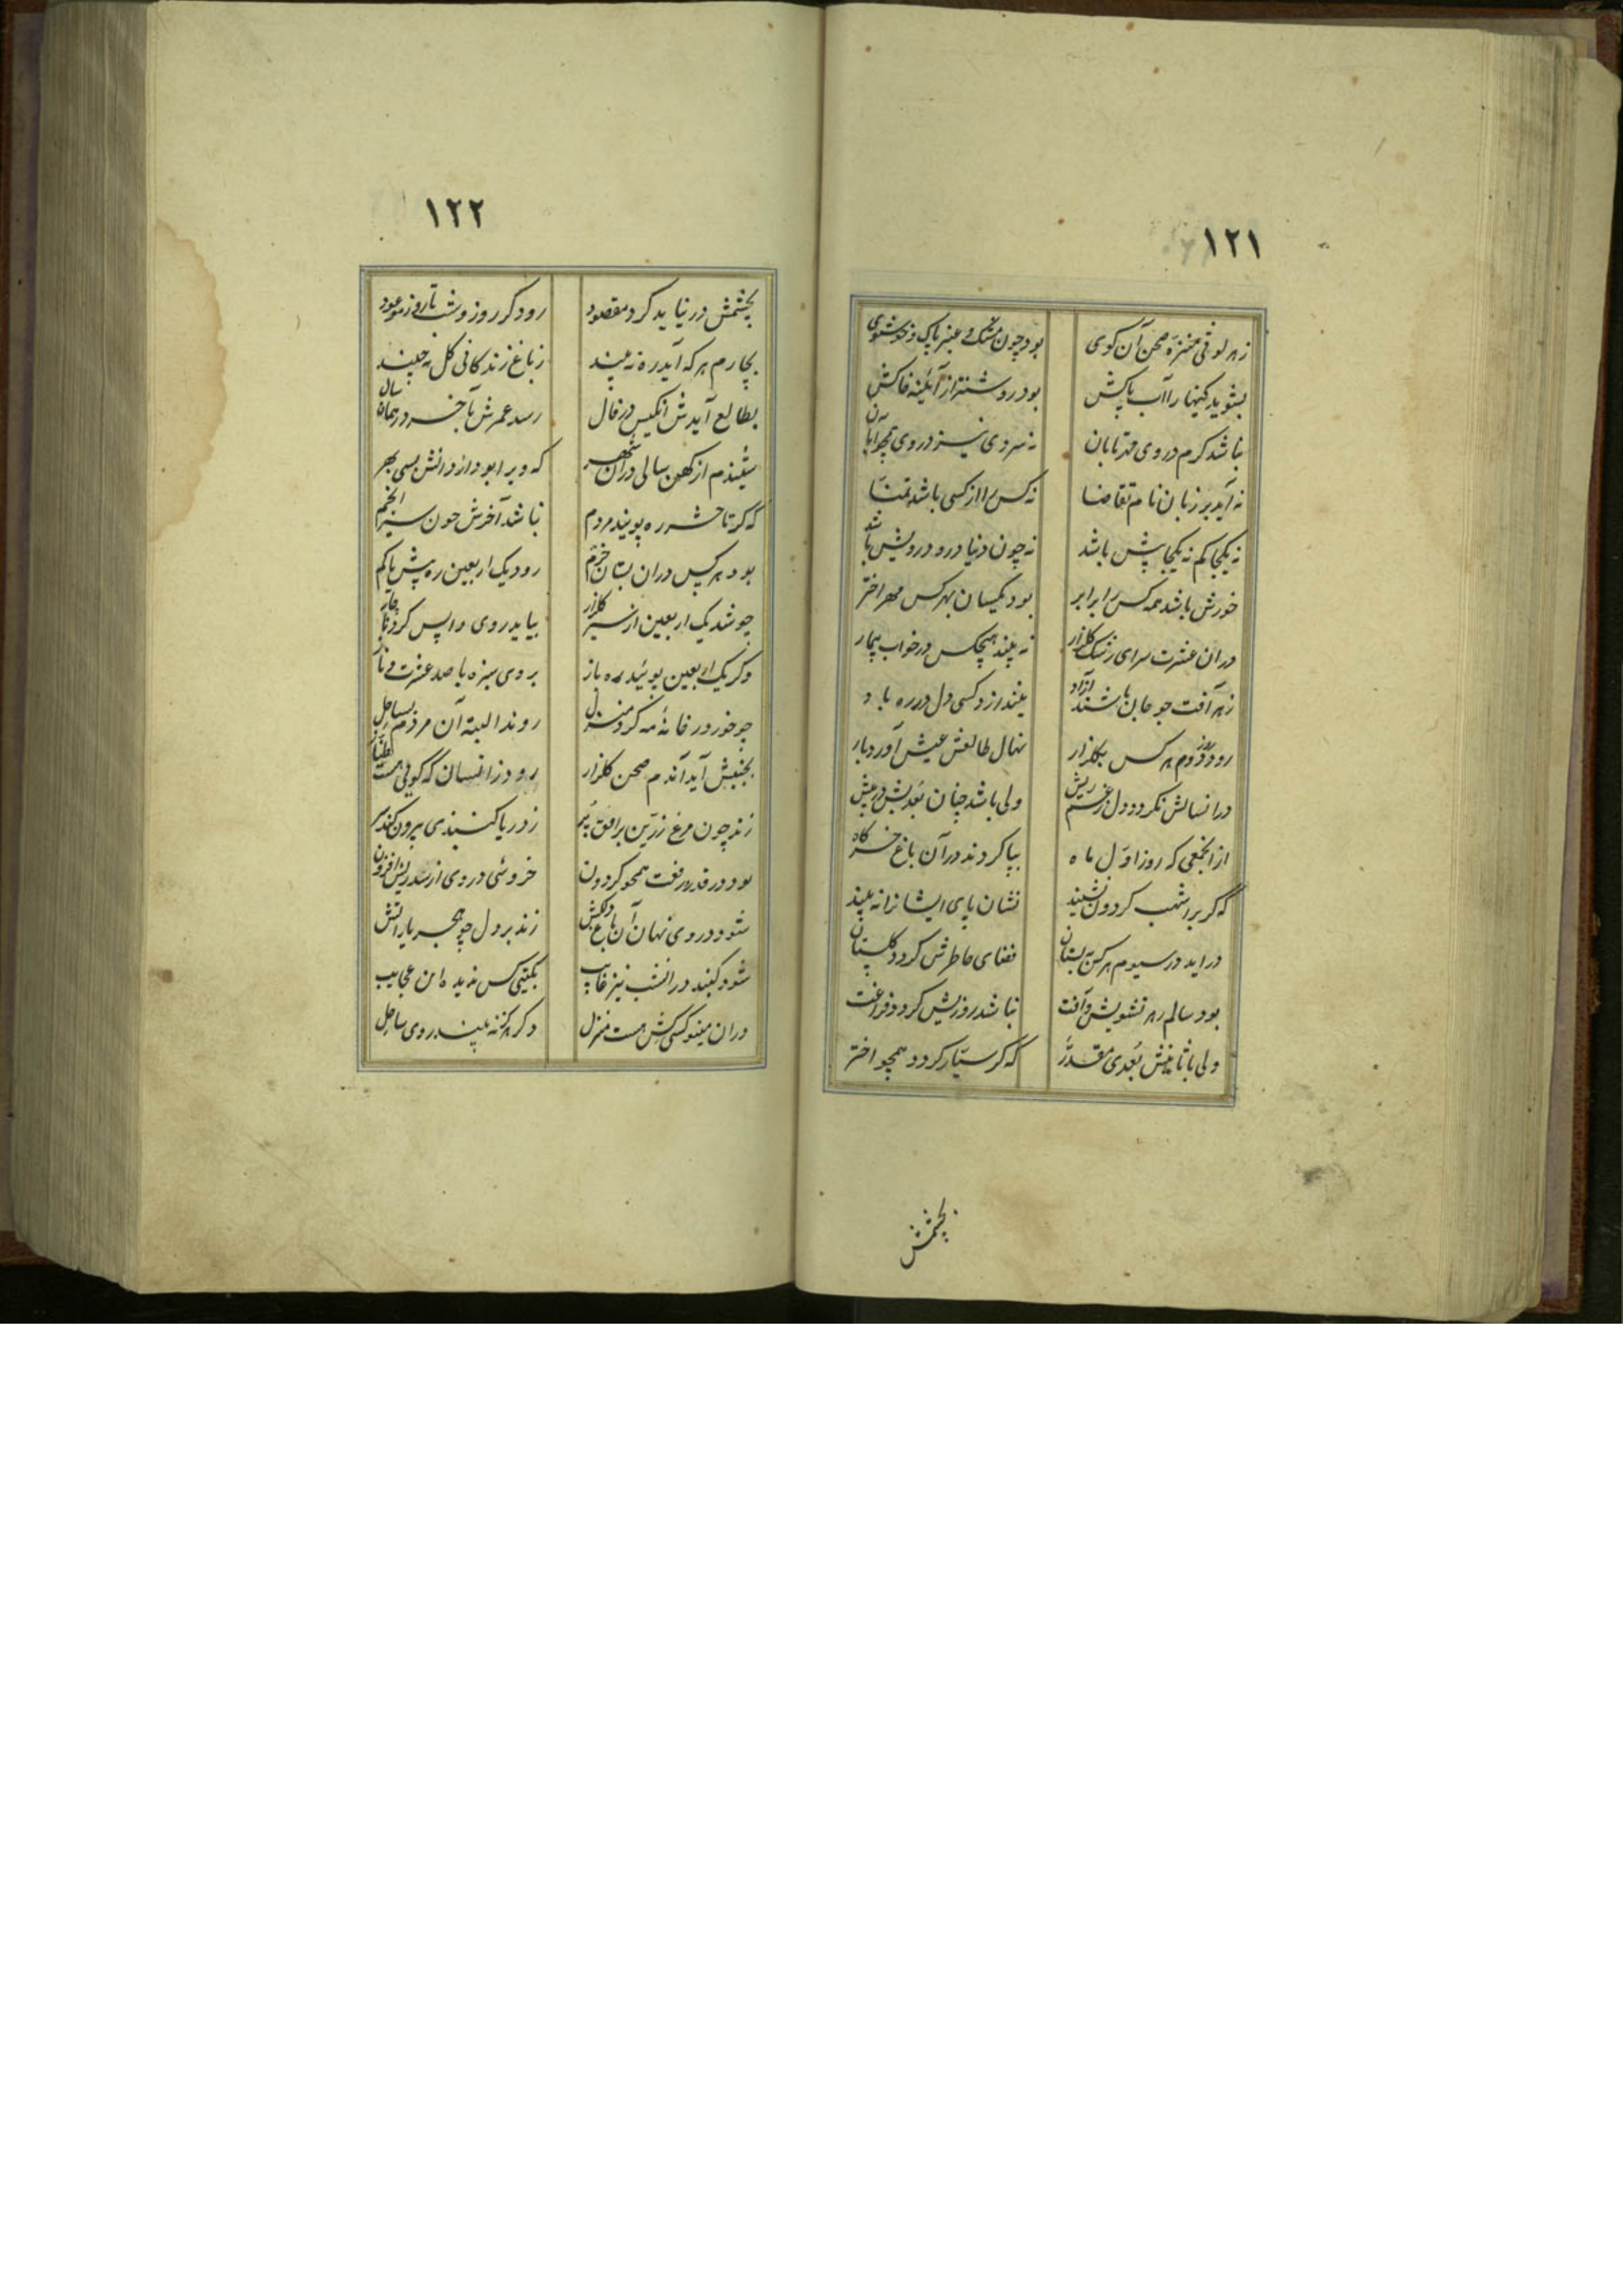 ۱۲۱
ز هر لوثی منزه صحن آن کوی بود چون مشک و عنبر پاک و خوشبوی
بشوید کینها را آب پاکش بود روشنتر از آئینه خاکش
نباشد گرم در وی مهر تابان نه سردی نیز در وی
نه آید بر زبان نام تقاضا نه کس را از کسی باشد تمنّا
نه یکجا کم نه یکجا بیش باشد نه چون دنیا درو درویش باشد
خورش باشد همه کس را برابر بود یکسان بهر کس مهر اختر
دران عشرت سرای رشک گلزار نه بیند هیچکس در خواب بیمار
ز هر آفت چو جان باشند آزاد کسی دل در ره باد
رود روز دوم هر کس بگلزار نهال طالعش عیش آورد بار
درانسالش نگردد دل ز غم ریش ولی باشد چنان بعدیش در پیش
از انجمعی که روز اوّل ماه بپا کردند در آن باغ خرگاه
که گر بر اشهب گردون نشیند نشان پای ایشانرا نه بیند
در آید در سیوم هر کس به بستان فضای خاطرش گردد گلستان
بود سالم ز هر تشویش و آفت نباشد روزیش گرد فراغت
ولی با ثانیش بُعدی مقدّر که گر سیّار گردد همچو اختر
بچشمش
۱۲۲
بچشمش در نیاید گرد مقصود رود گر روز و شب تا روز موعود
بچارم هر که آید ره نه بیند ز باغ زندگانی گل نه چیند
بطالع آیدش انکیس در فال رسد عمرش بآخر در همان سال
شنیدم از کهن سالی دران شهر که ویرا بود از دانش بسی بهر
که گر تا حشر ره پویند مردم نباشد آخرش چون سیر انجم
بود هر کس دران بستان خرّم رود یک اربعین ره بیش یا کم
چو شد یک اربعین از سیر گلزار بیاید روی واپس کرد ناچار
وگر یک اربعین پوئید ره باز بروی سبزه با صد عشرت و ناز
چو خور در خانهٔ مه کرد منزل روند البته آن مردم بساحل
بجنبش آید آندم صحن گلزار رود زانسان که گوئی هست طیّار
زند چون مرغ زرّین بر افق پر ز دریا گنبدی بیرون کند سر
بود در قدر و رفعت همچو گردون خروشی در وی از رعدش افزون
شود در وی نهان آن باغ دلکش زند بر دل چو هجر یار آتش
شود گنبد در انشب نیز غایب بگیتی کس ندیده این عجایب
دران مینو کسی کش هست منزل دگر هرگز نه بیند روی ساحل